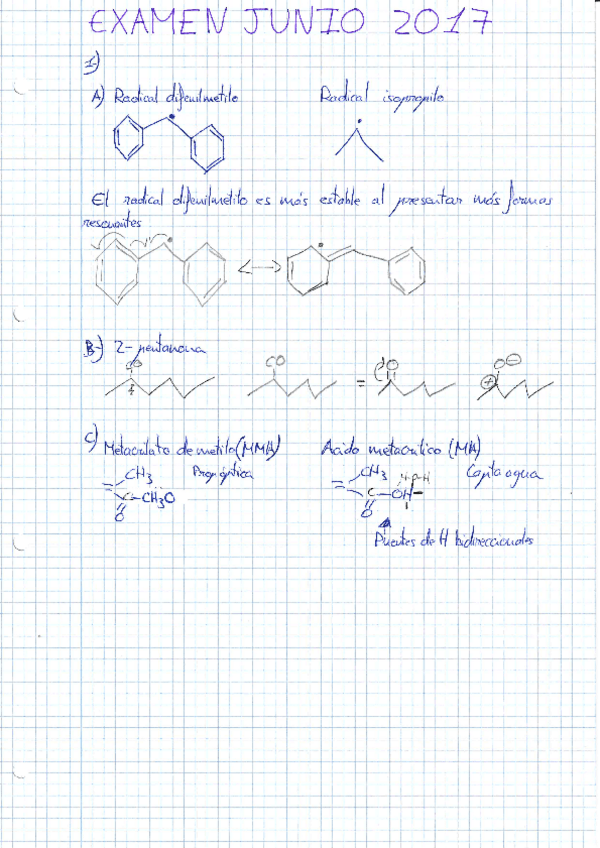 EXAMEN JUNIO 2017
1-)
A) Radical difenilmetilo Radical isopropilo
El radical difenilmetilo es más estable al presentar más formas
resonantes
B-) 2-pentanona
CO CO = O O ⊖ ⊕
C) Metacrilato de metilo (MMA) Acido metacrilico (MA)
CH3 Prop óptica CH3 H-O-H Capta agua
C-CH3O C-OH
O O
Puentes de H bidireccionales